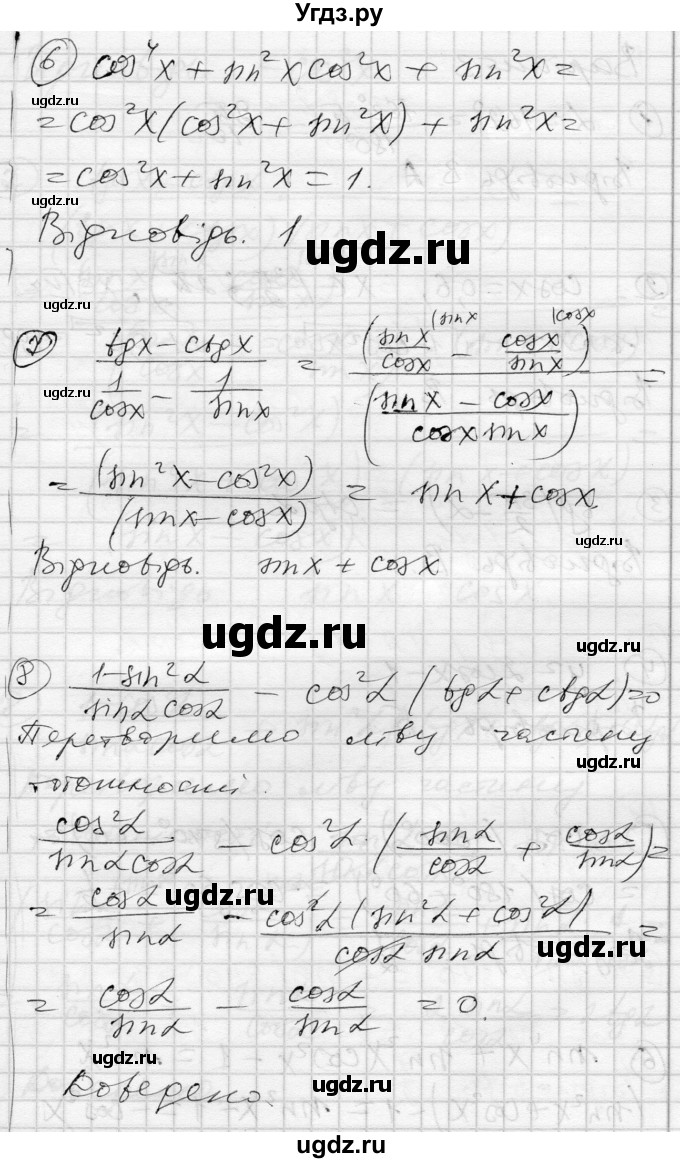 Угдз.ру
⑥ cos⁴x + sin²x cos²x + sin²x =
ugdz.ru
= cos²x (cos²x + sin²x) + sin²x =
ugdz.ru
= cos²x + sin²x = 1.
Відповідь. 1
ugdz.ru
ugdz.ru
⑦ (tgx − ctgx)/(1/cosx − 1/sinx) = (sinx/cosx |sinx − cosx/sinx |cosx)/((sinx − cosx)/(cosx sinx)) =
ugdz.ru
= (sin²x − cos²x)/(sinx − cosx) = sinx + cosx.
ugdz.ru
Відповідь. sinx + cosx
ugdz.ru
ugdz.ru
⑧ (1−sin²α)/(sinα cosα) − cos²α (tgα + ctgα) = 0
Перетворимо ліву частину
ugdz.ru
тотожності.
cos²α/(sinα cosα) − cos²α · (sinα/cosα + cosα/sinα) =
ugdz.ru
= cosα/sinα − cos²α (sin²α + cos²α)/(cosα sinα) =
ugdz.ru
= cosα/sinα − cosα/sinα = 0.
ugdz.ru
Доведено.
ugdz.ru
ugdz.ru